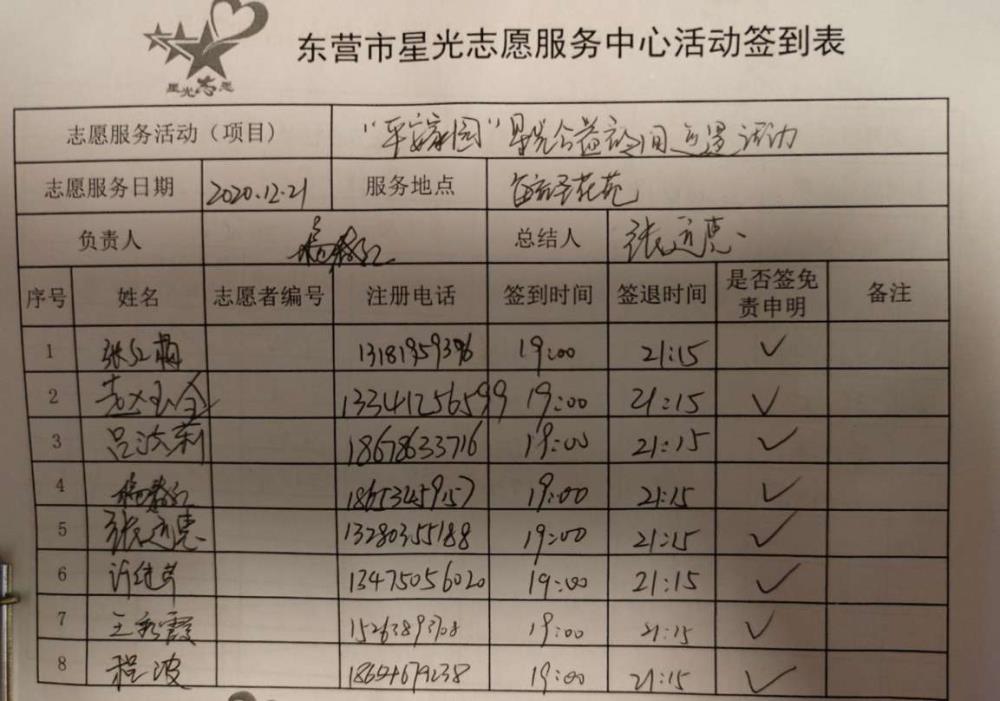 星光志愿
东营市星光志愿服务中心活动签到表
志愿服务活动（项目） “平安家园”星光公益夜间巡逻活动
志愿服务日期 2020.12.21 服务地点 花苑
负责人 总结人 张
序号 姓名 志愿者编号 注册电话 签到时间 签退时间 是否签免责申明 备注
1 张红梅 13181959396 19:00 21:15 ✓
2 赵玉全 13341256599 19:00 21:15 ✓
3 吕洪莉 18678633716 19:00 21:15 ✓
4 18653459157 19:00 21:15 ✓
5 张 13280355188 19:00 21:15 ✓
6 许 13475056020 19:00 21:15 ✓
7 王彩霞 15263893708 19:00 21:15 ✓
8 程波 19:00 21:15 ✓